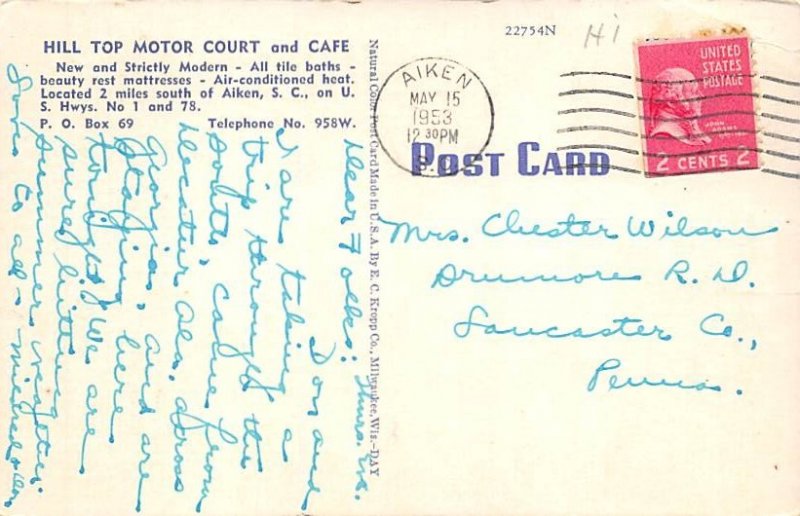 22754N
Hi
HILL TOP MOTOR COURT and CAFE
New and Strictly Modern - All tile baths -
beauty rest mattresses - Air-conditioned heat.
Located 2 miles south of Aiken, S. C., on U.
S. Hwys. No 1 and 78.
P. O. Box 69 Telephone No. 958W.
Natural Color Post Card Made in U. S. A. By E. C. Kropp Co., Milwaukee, Wis.-DAY
AIKEN
MAY 15
1953
12 30 PM
S. C.
UNITED
STATES
POSTAGE
JOHN
ADAMS
2 CENTS 2
POST CARD
Mrs. Chester Wilson
Drumore R. D.
Lancaster Co.,
Penna.
Thurs. eve.
Dear Folks:
Don and
I are taking a
trip through the
south, came from
Decatur, Ala. across
Georgia, and are
staying here
tonight. We are
sure hitting
summer weather.
Love to all - Mildred & Don